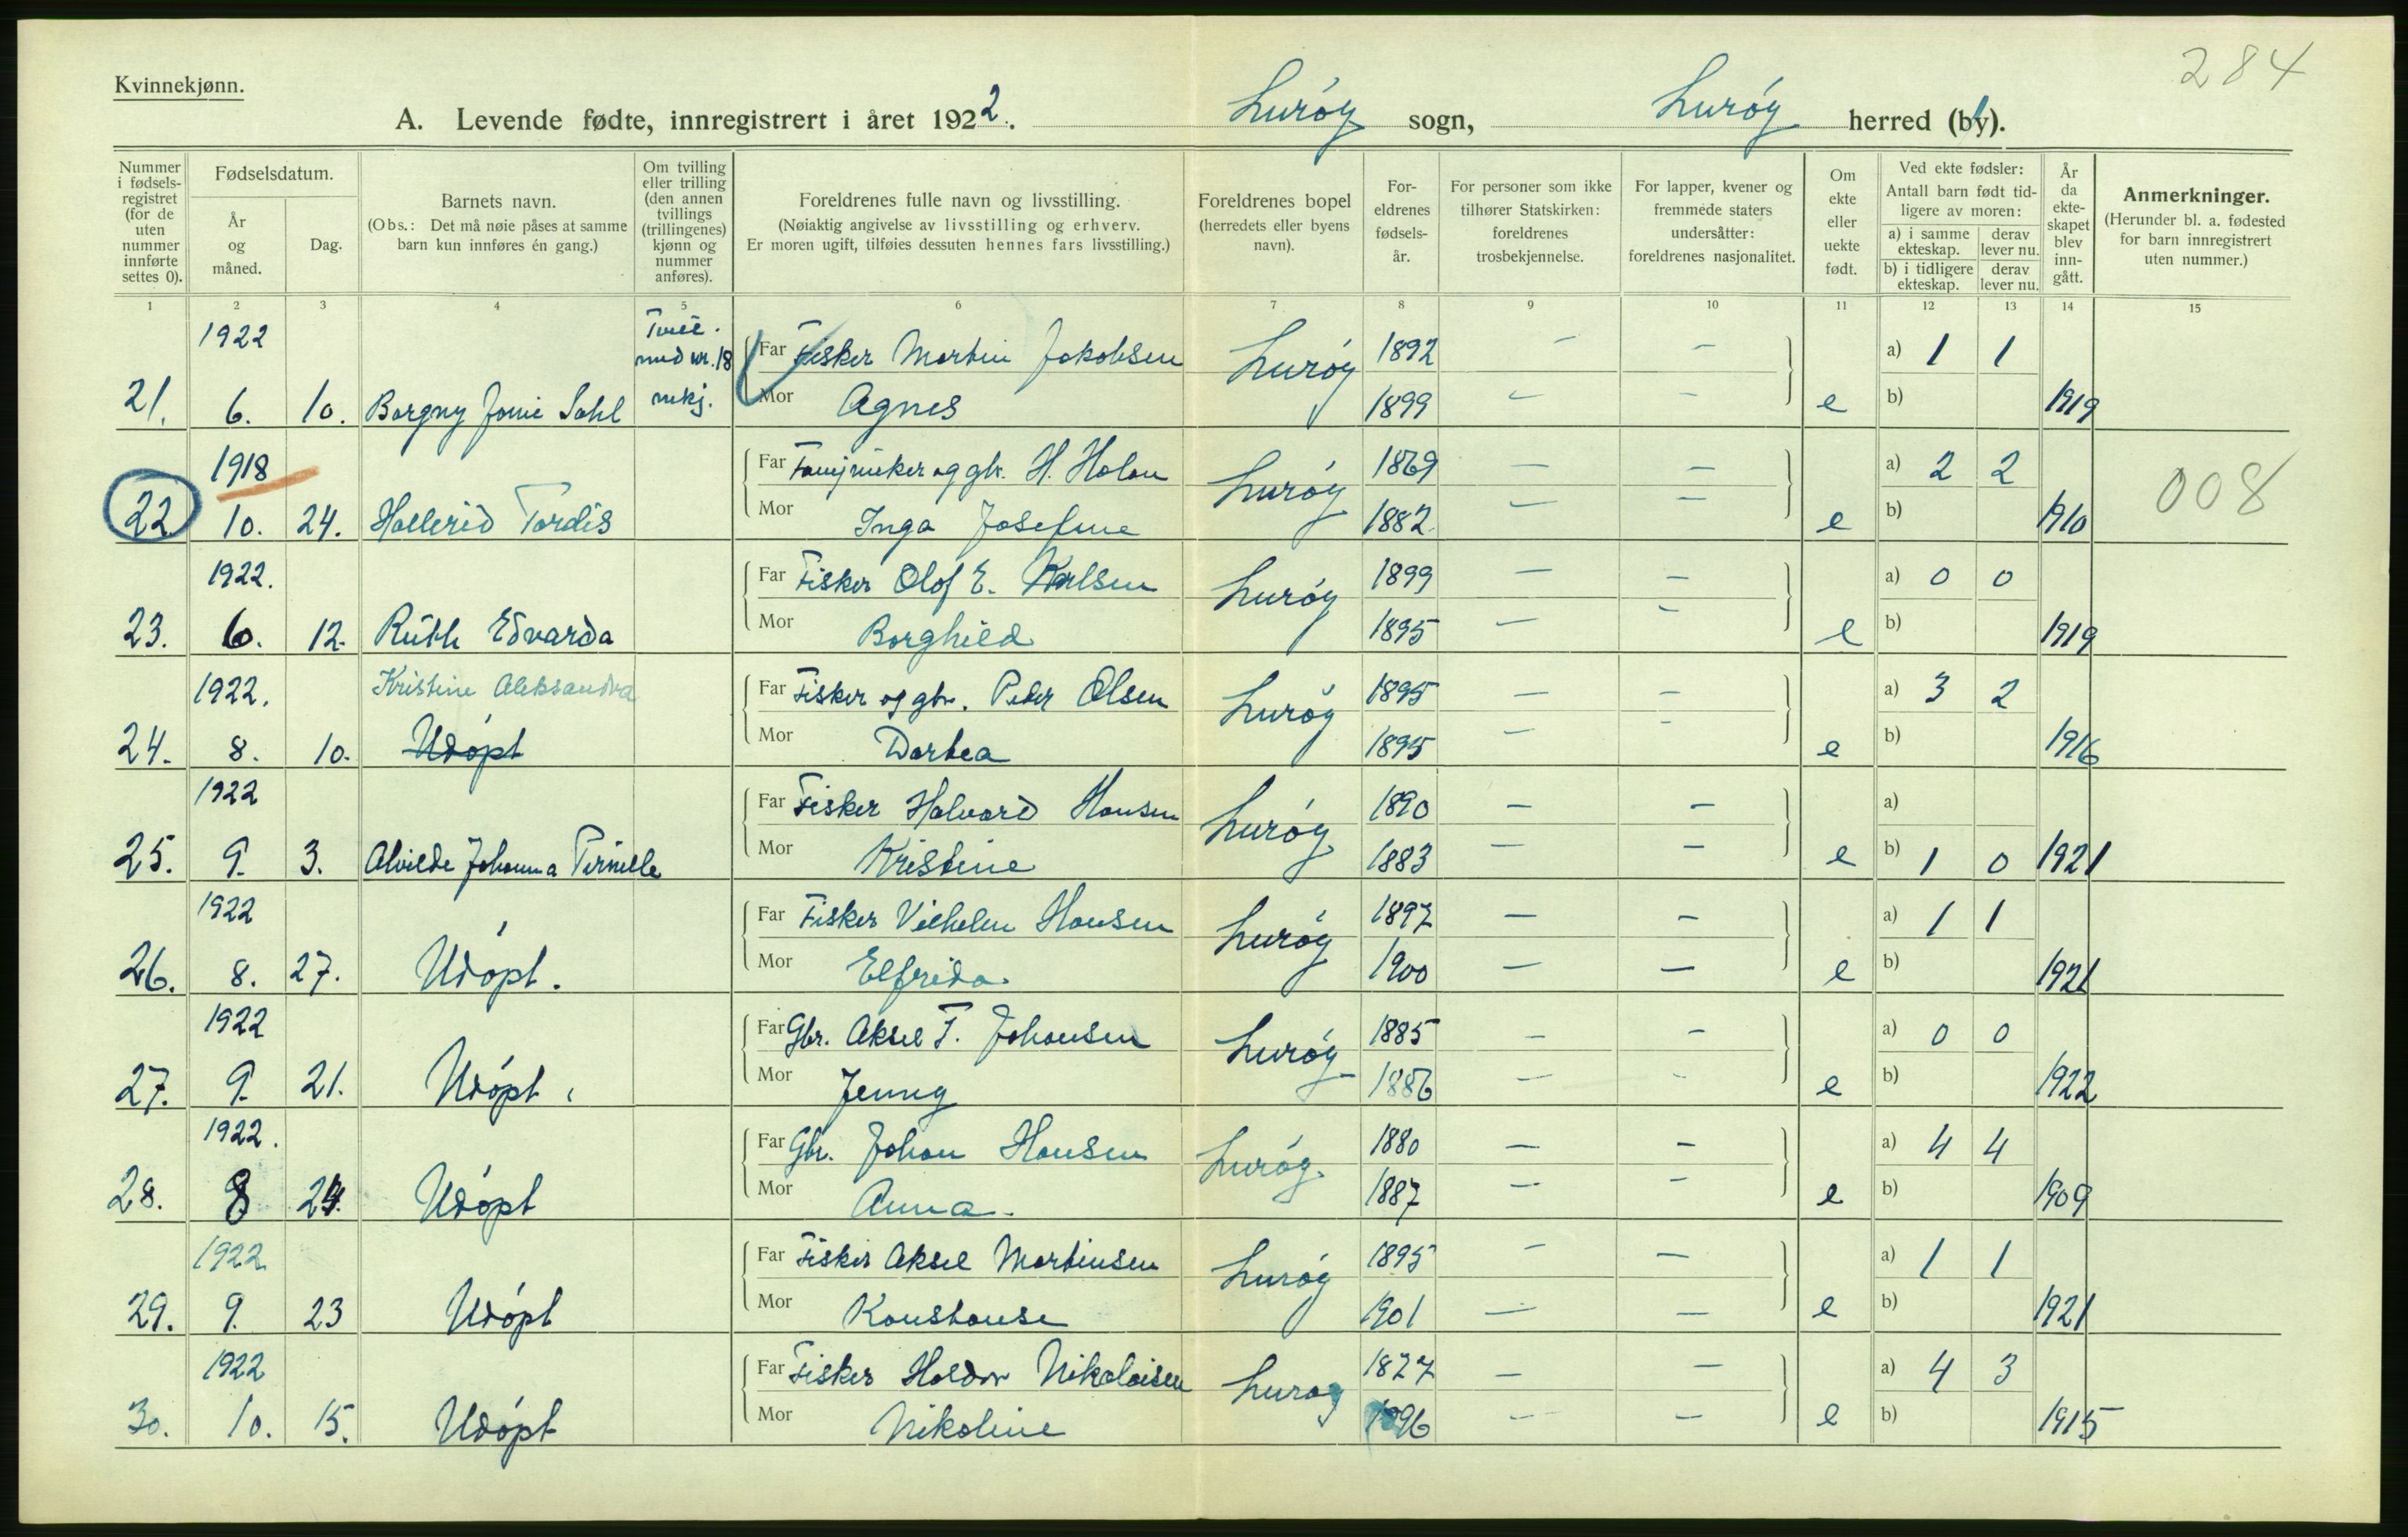 284
Kvinnekjønn.
A. Levende fødte, innregistrert i året 1922. Lurøy sogn, Lurøy herred (by).
Nummer i fødsels-registret (for de uten nummer innførte settes 0).
Fødselsdatum.
År og måned.
Dag.
Barnets navn.
(Obs.: Det må nøie påses at samme barn kun innføres én gang.)
Om tvilling eller trilling (den annen tvillings (trillingenes) kjønn og nummer anføres).
Foreldrenes fulle navn og livsstilling.
(Nøiaktig angivelse av livsstilling og erhverv.
Er moren ugift, tilføies dessuten hennes fars livsstilling.)
Foreldrenes bopel
(herredets eller byens navn).
For-eldrenes fødsels-år.
For personer som ikke tilhører Statskirken: foreldrenes trosbekjennelse.
For lapper, kvener og fremmede staters undersåtter: foreldrenes nasjonalitet.
Om ekte eller uekte født.
Ved ekte fødsler:
Antall barn født tid-ligere av moren:
a) i samme ekteskap. derav lever nu.
b) i tidligere ekteskap. derav lever nu.
År da ekte-skapet blev inn-gått.
Anmerkninger.
(Herunder bl. a. fødested for barn innregistrert uten nummer.)
1 2 3 4 5 6 7 8 9 10 11 12 13 14 15
1922 Far Fisker Martin Jakobsen Lurøy 1892 — — a) 1 1
21. 6. 10. Borgny Jonie Dahl med nr. 18 mkj. Mor Agnes 1899 — — e b) 1919
1918 Far og gbr. H. Holan Lurøy 1869 — — a) 2 2 008
22 10. 24. Hallerid Tordis Mor Inga Josefine 1882 — — e b) 1910
1922. Far Fisker Olof E. Karlsen Lurøy 1899 — — a) 0 0
23. 6. 12. Ruth Edvarda Mor Borghild 1895 — — e b) 1919
1922. Kristine Aleksandra Far Fisker og gbr. Peder Olsen Lurøy 1895 — — a) 3 2
24. 8. 10. Udøpt Mor Dortea 1895 — — e b) 1916
1922 Far Fisker Halvard Hansen Lurøy 1890 — — a)
25. 9. 3. Alvilde Johanna Pernille Mor Kristine 1883 — — e b) 1 0 1921
1922 Far Fisker Vilhelm Hansen Lurøy 1897 — — a) 1 1
26. 8. 27. Udøpt. Mor Elfrida 1900 — — e b) 1921
1922 Far Gbr. Aksel F. Johansen Lurøy 1885 — — a) 0 0
27. 9. 21. Udøpt. Mor Jenny 1886 — — e b) 1922
1922. Far Gbr. Johan Hansen Lurøy 1880 — — a) 4 4
28. 8 24. Udøpt Mor Anna. 1887 — — e b) 1909
1922 Far Fisker Aksel Martinsen Lurøy 1895 — — a) 1 1
29. 9. 23 Udøpt Mor Konstanse 1901 — — e b) 1921
1922 Far Fisker Haldor Nikolaisen Lurøy 1877 — — a) 4 3
30. 10. 15. Udøpt Mor Nikoline 1896 — — e b) 1915